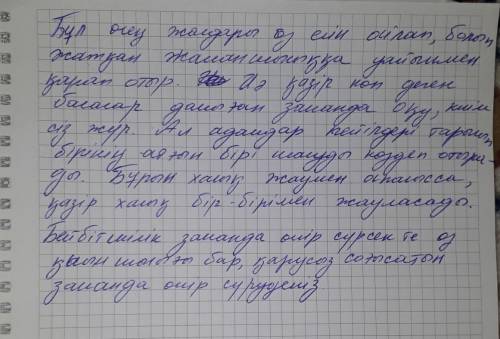 Бұл өлең жолдары өз елін ойлап, болып
жатқан жамандыққа уайыммен
қарап отыр. Иә қазір көп деген
балалар дамыған заманда оқу, киім
сіз жүр. Ал адамдар кейбірдері тарының
бірінің аяғын бірі шалуды көздеп отыра-
ды. Бұрын халық жаумен алысса,
қазір халық бір-бірімен жауласады.
Бейбітшілік заманда өмір сүрсек те өз
қиыншылығы бар, қарусыз соғысатын
заманда өмір сүрудеміз